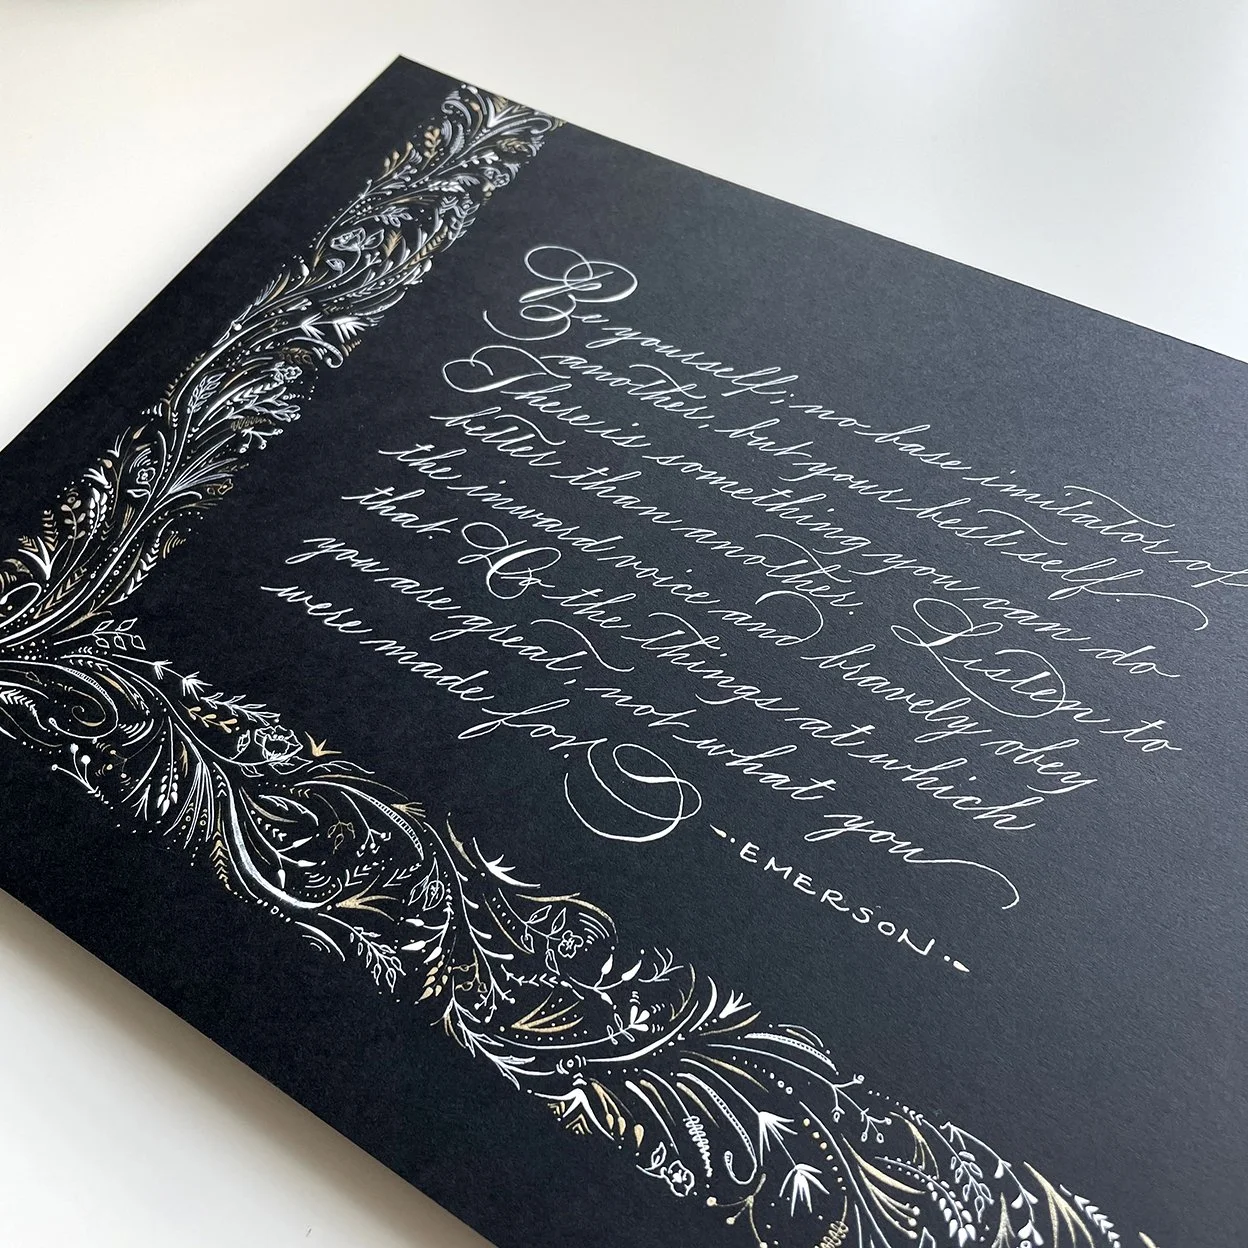 Be yourself; no base imitator of
another, but your best self.
There is something you can do
better than another. Listen to
the inward voice and bravely obey
that. Do the things at which
you are great, not what you
were made for.
EMERSON